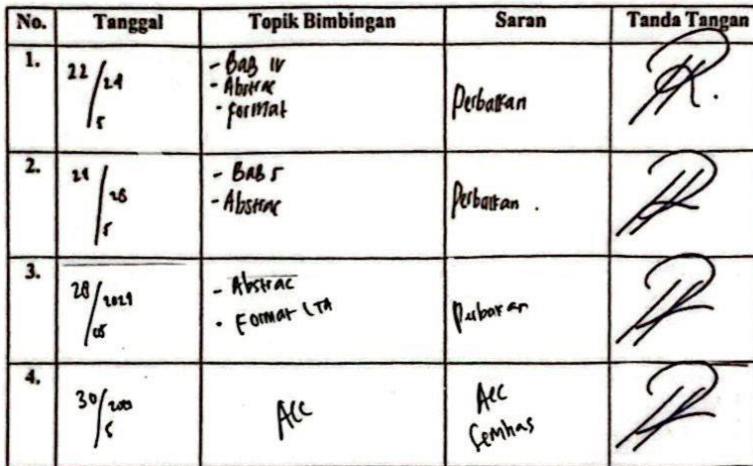 No. Tanggal Topik Bimbingan Saran Tanda Tangan
1.
22/
5
- BAB IV
- Abstrac
- Format
Perbaikan
2.
5
- BAB 5
- Abstrac
Perbaikan.
3.
28/
05
- Abstrac
- Format LTA
Perbaikan
4.
30/
5
ACC
ACC
Semhas